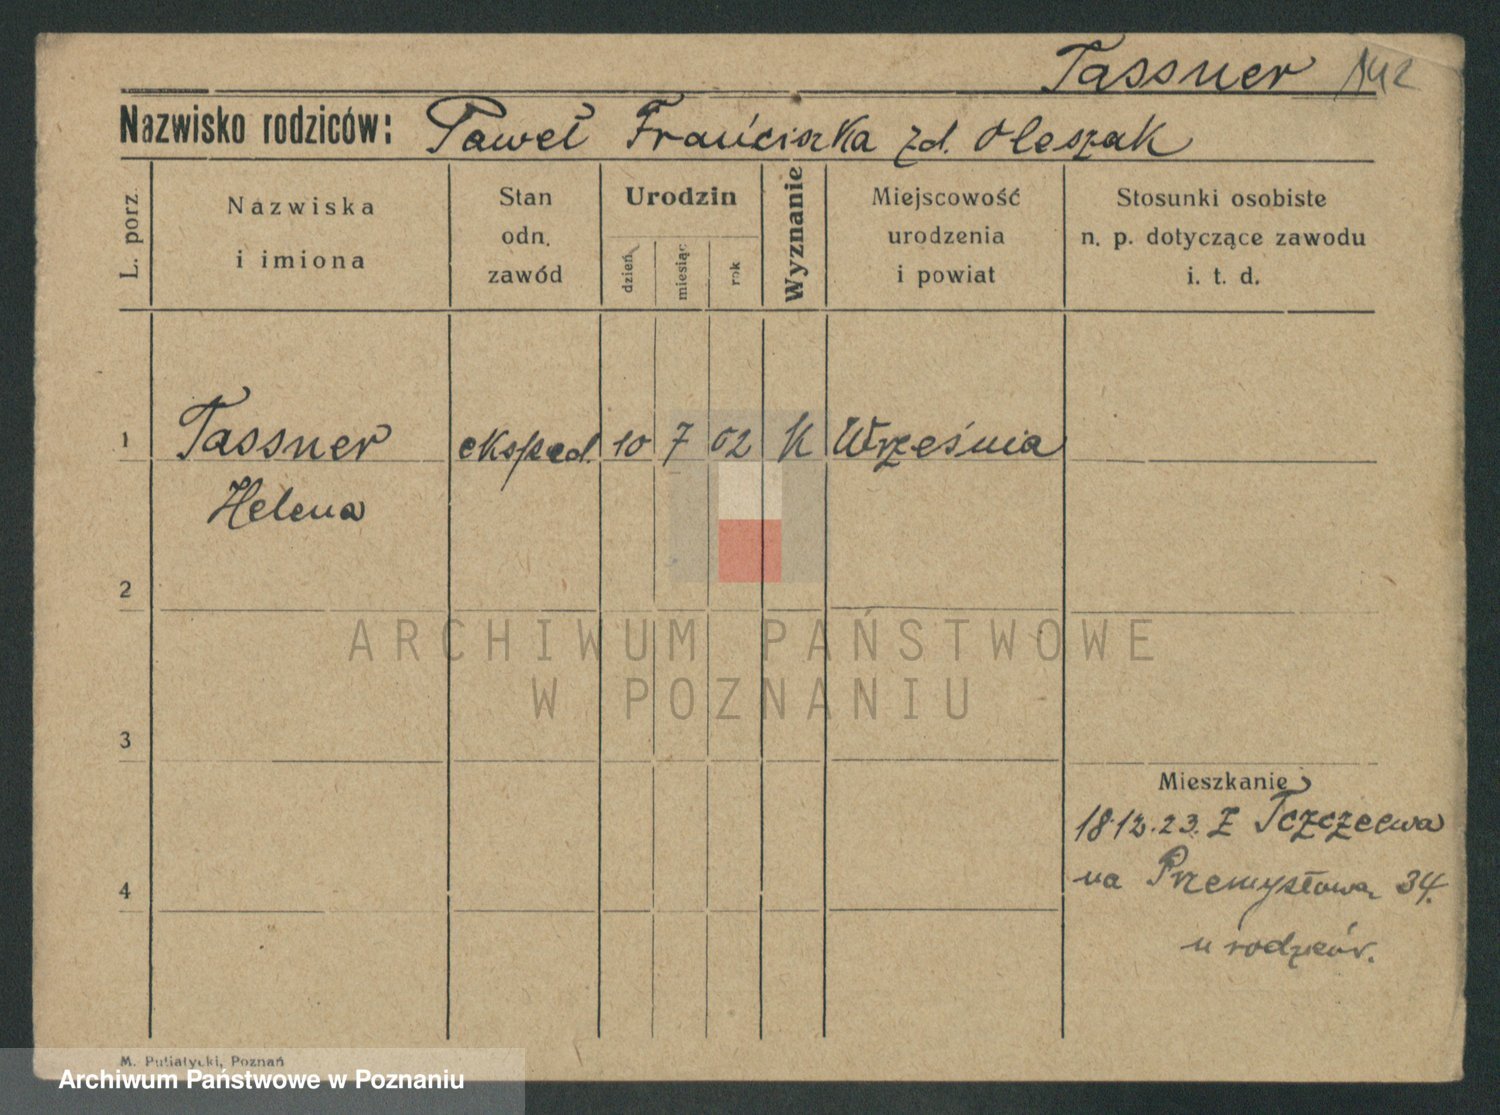 Tassner 142
Nazwisko rodziców: Paweł Franciszka zd. Oleszak
L. porz.
Nazwiska
i imiona
Stan
odn.
zawód
Urodzin
dzień
miesiąc
rok
Wyznanie
Miejscowość
urodzenia
i powiat
Stosunki osobiste
n. p. dotyczące zawodu
i. t. d.
1 Tassner eksped. 10 7 02 K Września
Helena
2
ARCHIWUM PAŃSTWOWE
W POZNANIU
3
Mieszkanie
18.12.23. Z Tczczewa
4 na Przemysłową 34.
u rodziców.
M. Putiatycki, Poznań
Archiwum Państwowe w Poznaniu